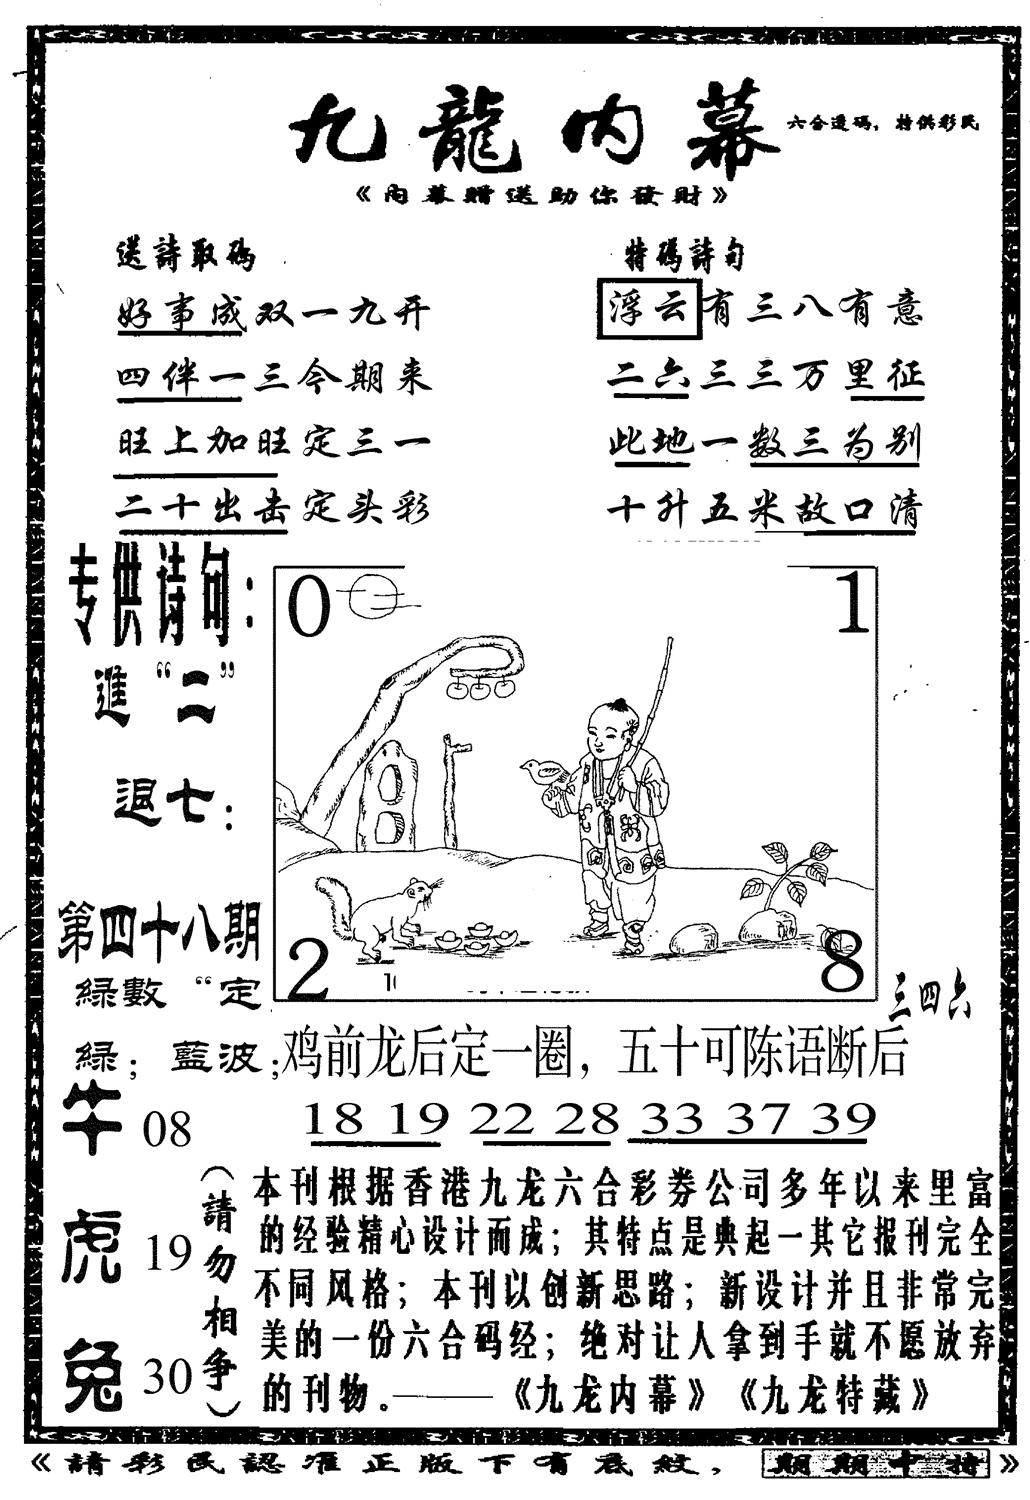 九龍内幕
六合透碼，特供彩民
《内幕贈送助你發財》
送詩取碼
好事成双一九开
四伴一三今期来
旺上加旺定三一
二十出击定头彩
特碼詩句
浮云有三八有意
二六三三万里征
此地一数三为别
十升五米故口清
专供诗句：
進“二”
退七：
第四十八期
緑數“定
緑；藍波；
0
1
2
8
三四六
鸡前龙后定一圈，五十可陈语断后
18 19 22 28 33 37 39
牛 08
虎 19
兔 30
（請勿相争）
本刊根据香港九龙六合彩券公司多年以来里富
的经验精心设计而成；其特点是典起一其它报刊完全
不同风格；本刊以创新思路；新设计并且非常完
美的一份六合码经；绝对让人拿到手就不愿放弃
的刊物。——《九龙内幕》《九龙特藏》
《請彩民認准正版下有底紋，期期中特》